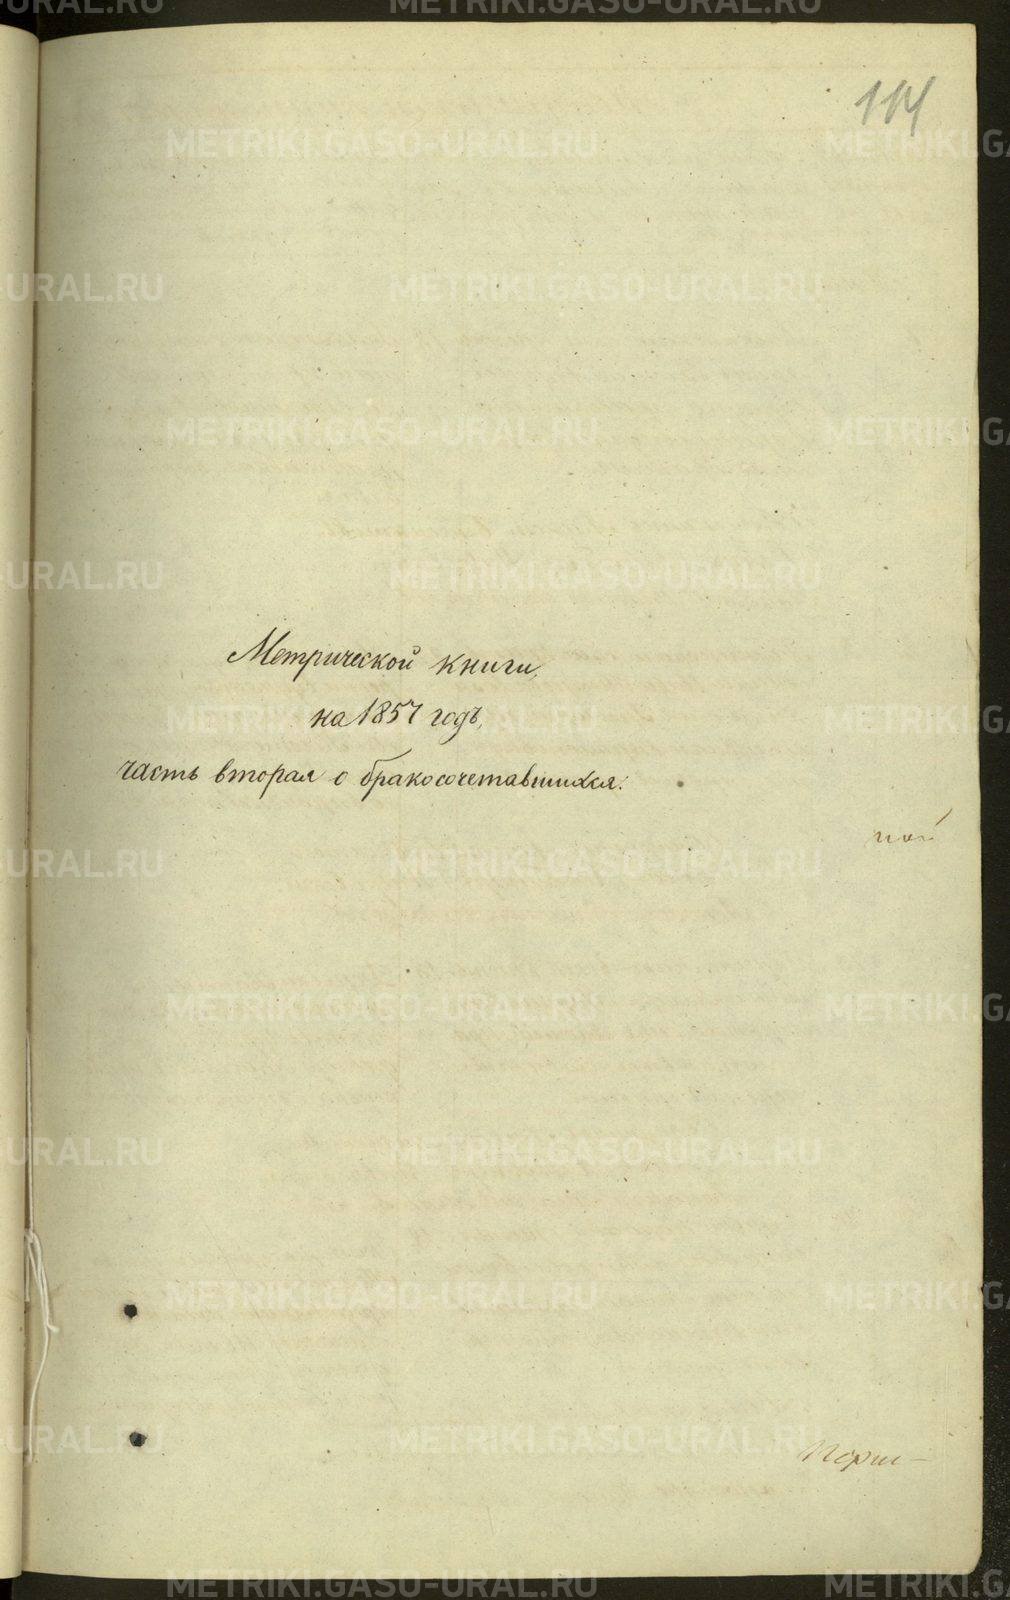 114
Метрической книги,
на 1857 годъ,
часть вторая о бракосочетавшихся.
METRIKI.GASO-URAL.RU